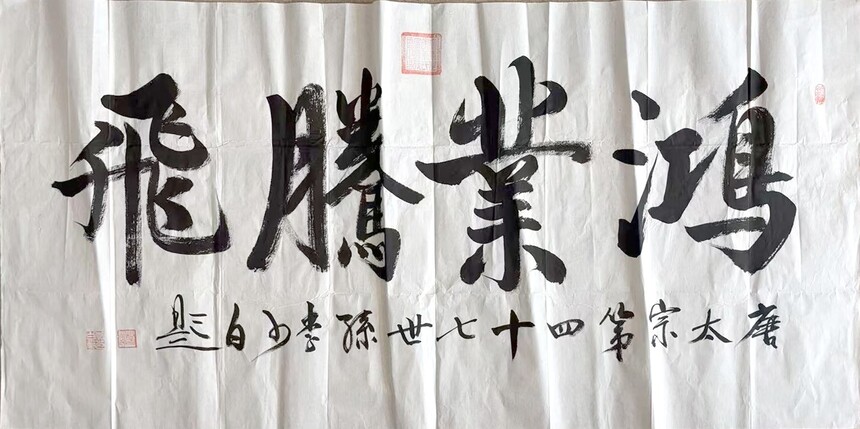 鴻業騰飛
唐太宗第四十七世孫李少白題